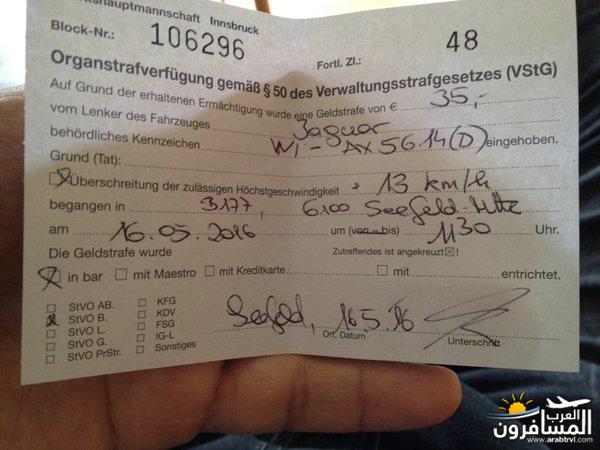 rkshauptmannschaft Innsbruck
Block-Nr.: 106296
Fortl. Zl.: 48
Organstrafverfügung gemäß § 50 des Verwaltungsstrafgesetzes (VStG)
Auf Grund der erhaltenen Ermächtigung wurde eine Geldstrafe von € 35,-
vom Lenker des Fahrzeuges Jaguar
behördliches Kennzeichen WI-AX5614(D) eingehoben.
Grund (Tat):
Überschreitung der zulässigen Höchstgeschwindigkeit 13 km/h
begangen in B177, 6100 Seefeld
am 16.05.2016 um (von – bis) 1130 Uhr.
Die Geldstrafe wurde Zutreffendes ist angekreuzt ☒!
☒ in bar ☐ mit Maestro ☐ mit Kreditkarte: ☐ mit entrichtet.
☐ StVO AB. ☐ KFG
☒ StVO B. ☐ KDV
☐ StVO L. ☐ FSG
☐ StVO G. ☐ IG-L
☐ StVO PrStr. ☐ Sonstiges
Seefeld, 16.5.16
Ort, Datum Unterschrift
العرب
المسافرون
www.arabtrvl.com